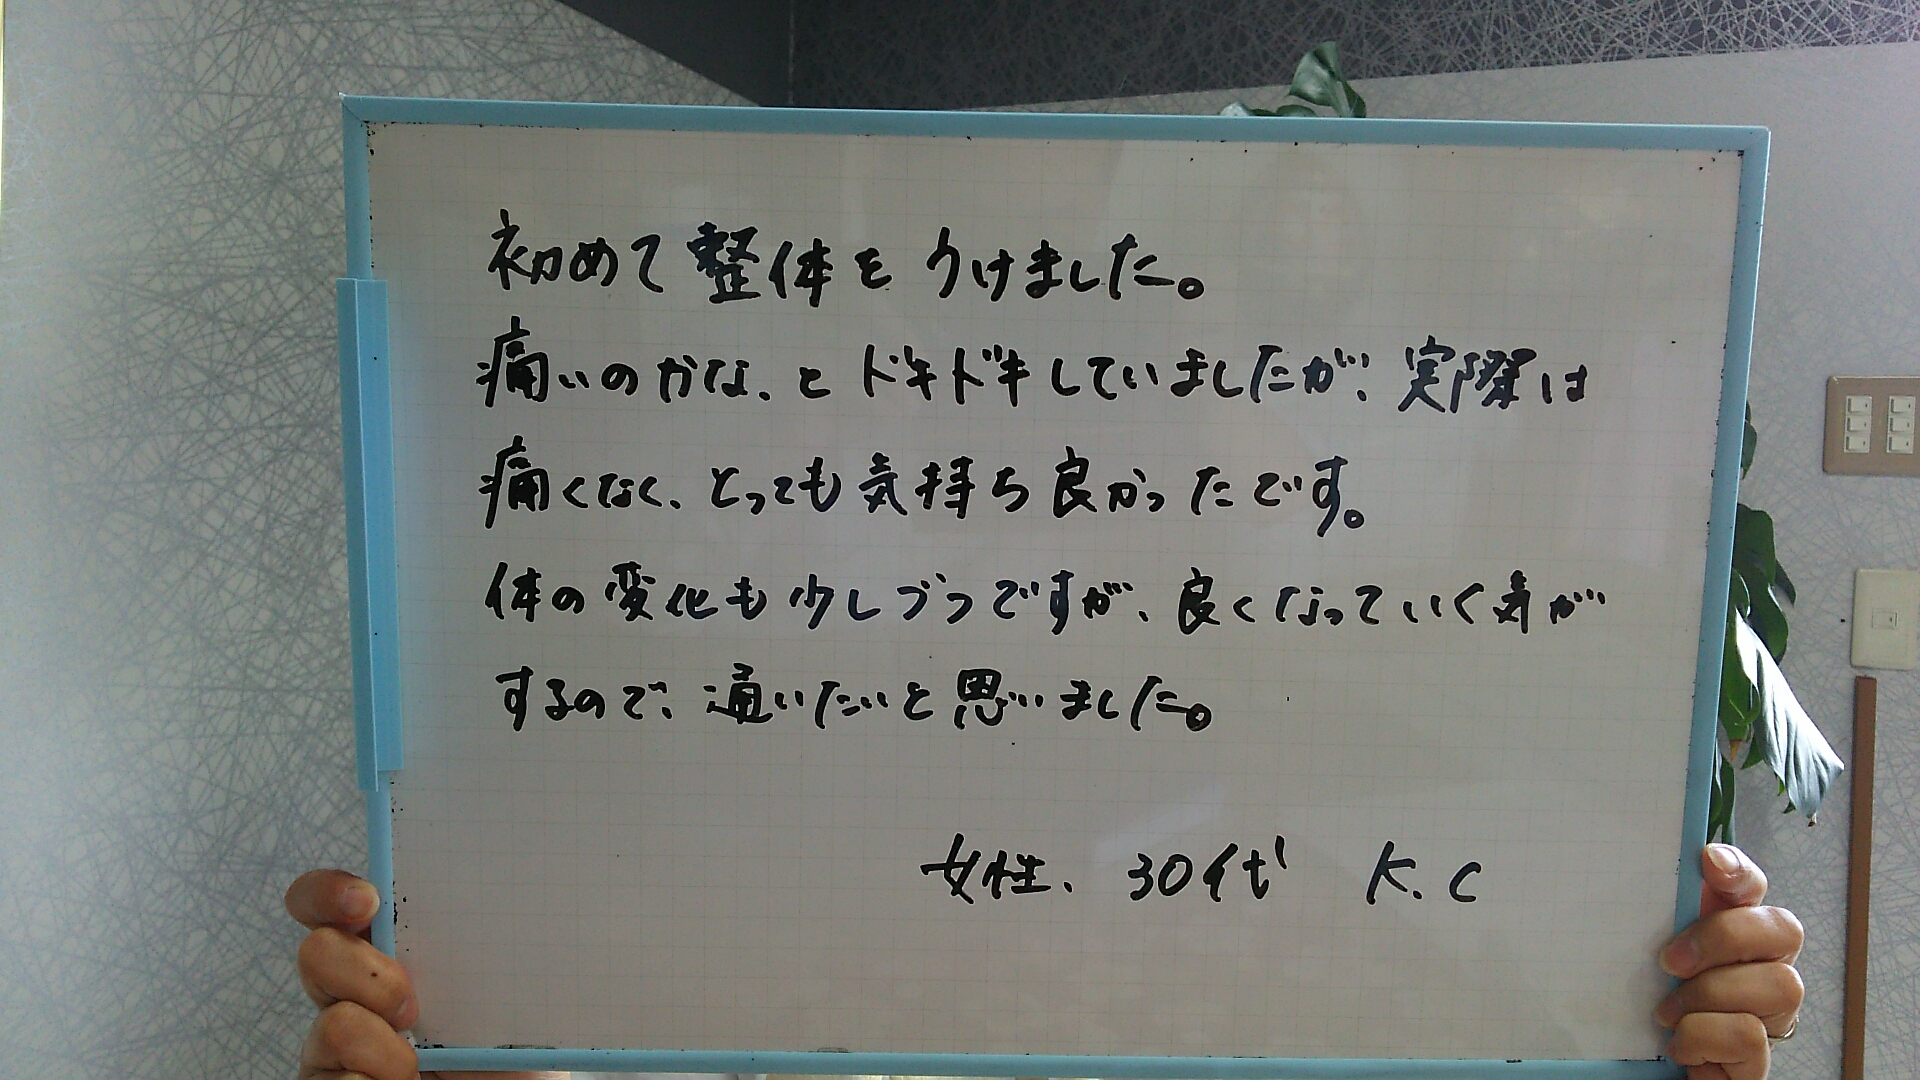 初めて整体をうけました。
痛いのかな、とドキドキしていましたが、実際は
痛くなく、とっても気持ち良かったです。
体の変化も少しづつですが、良くなっていく気が
するので、通いたいと思いました。
女性、30代 K.C